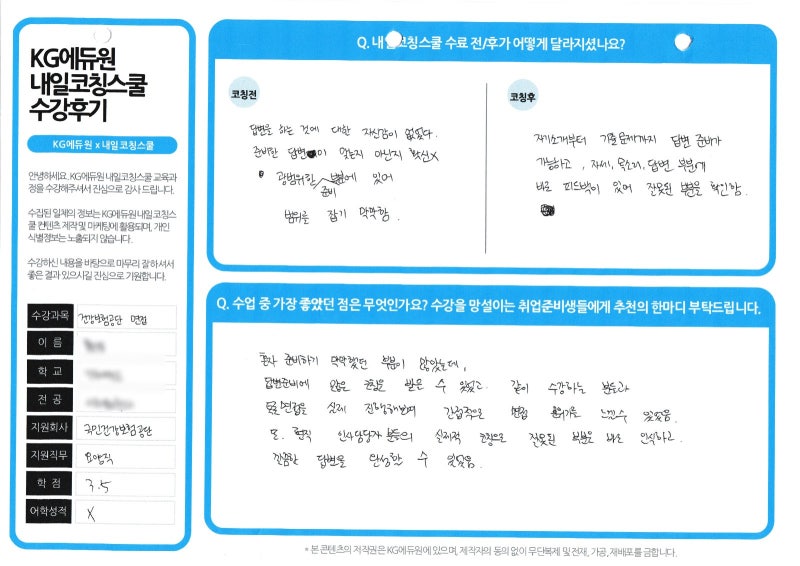 KG에듀원
내일코칭스쿨
수강후기
KG에듀원 x 내일코칭스쿨
안녕하세요. KG에듀원 내일코칭스쿨 교육과
정을 수강해주셔서 진심으로 감사 드립니다.
수집된 일체의 정보는 KG에듀원 내일 코칭스
쿨 컨텐츠 제작 및 마케팅에 활용되며, 개인
식별정보는 노출되지 않습니다.
수강하신 내용을 바탕으로 마무리 잘 하셔서
좋은 결과 있으시길 진심으로 기원합니다.
수강과목 건강보험공단 면접
이 름
학 교
전 공
지원회사 국민건강보험공단
지원직무 요양직
학 점 3.5
어학성적 X
Q. 내일코칭스쿨 수료 전/후가 어떻게 달라지셨나요?
코칭전
답변을 하는 것에 대한 자신감이 없었다.
준비한 답변이 맞는지 아닌지 확신X
광범위한 준비 부분에 있어
범위를 잡기 막막함.
코칭후
자기소개부터 기출문제까지 답변 준비가
가능하고, 자세, 목소리, 답변 부분에
바로 피드백이 있어 잘못된 부분을 확인함.
Q. 수업 중 가장 좋았던 점은 무엇인가요? 수강을 망설이는 취업준비생들에게 추천의 한마디 부탁드립니다.
혼자 준비하기 막막했던 부분이 많았는데,
답변준비에 많은 도움을 받을 수 있었고. 같이 수강하는 분들과
모의면접을 실제 진행해보며 간접적으로 면접 분위기를 느낄수 있었음.
또, 현직 인사담당자 분들의 실제적 조언으로 잘못된 부분을 바로 인식하고.
깔끔한 답변을 완성할 수 있었음.
* 본 콘텐츠의 저작권은 KG에듀원에 있으며, 제작자의 동의 없이 무단복제 및 전재, 가공, 재배포를 금합니다.